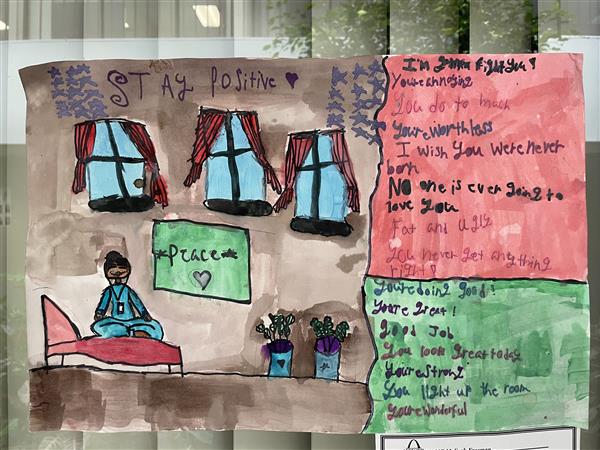 STAY Positive
*Peace*
I'm gonna fight you!
You're annoying
You do to much
You're worthless
I wish you were never
born
NO one is ever going to
love you
Fat and Ugly
You never get anything
right!
You're doing good!
You're great!
Good Job
You look great today
You're Strong
You light up the room
You're wonderful